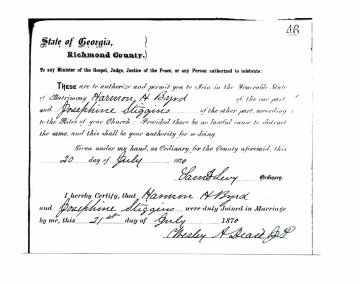 48
State of Georgia,
Richmond County.
To any Minister of the Gospel, Judge, Justice of the Peace, or any Person authorized to celebrate:
THESE are to authorize and permit you to Join in the Honorable State
of Matrimony Harmon H Byrd of the one part
and Josephine Stiggins of the other part, according
to the Rites of your Church: Provided there be no lawful cause to obstruct
the same, and this shall be your authority for so doing.
Given under my hand, as Ordinary for the County aforesaid, this
20 day of July 1870
Saml Levy Ordinary.
I hereby Certify, that Harmon H Byrd
and Josephine Stiggins were duly Joined in Marriage
by me, this 21st day of July 1870
Wesley A